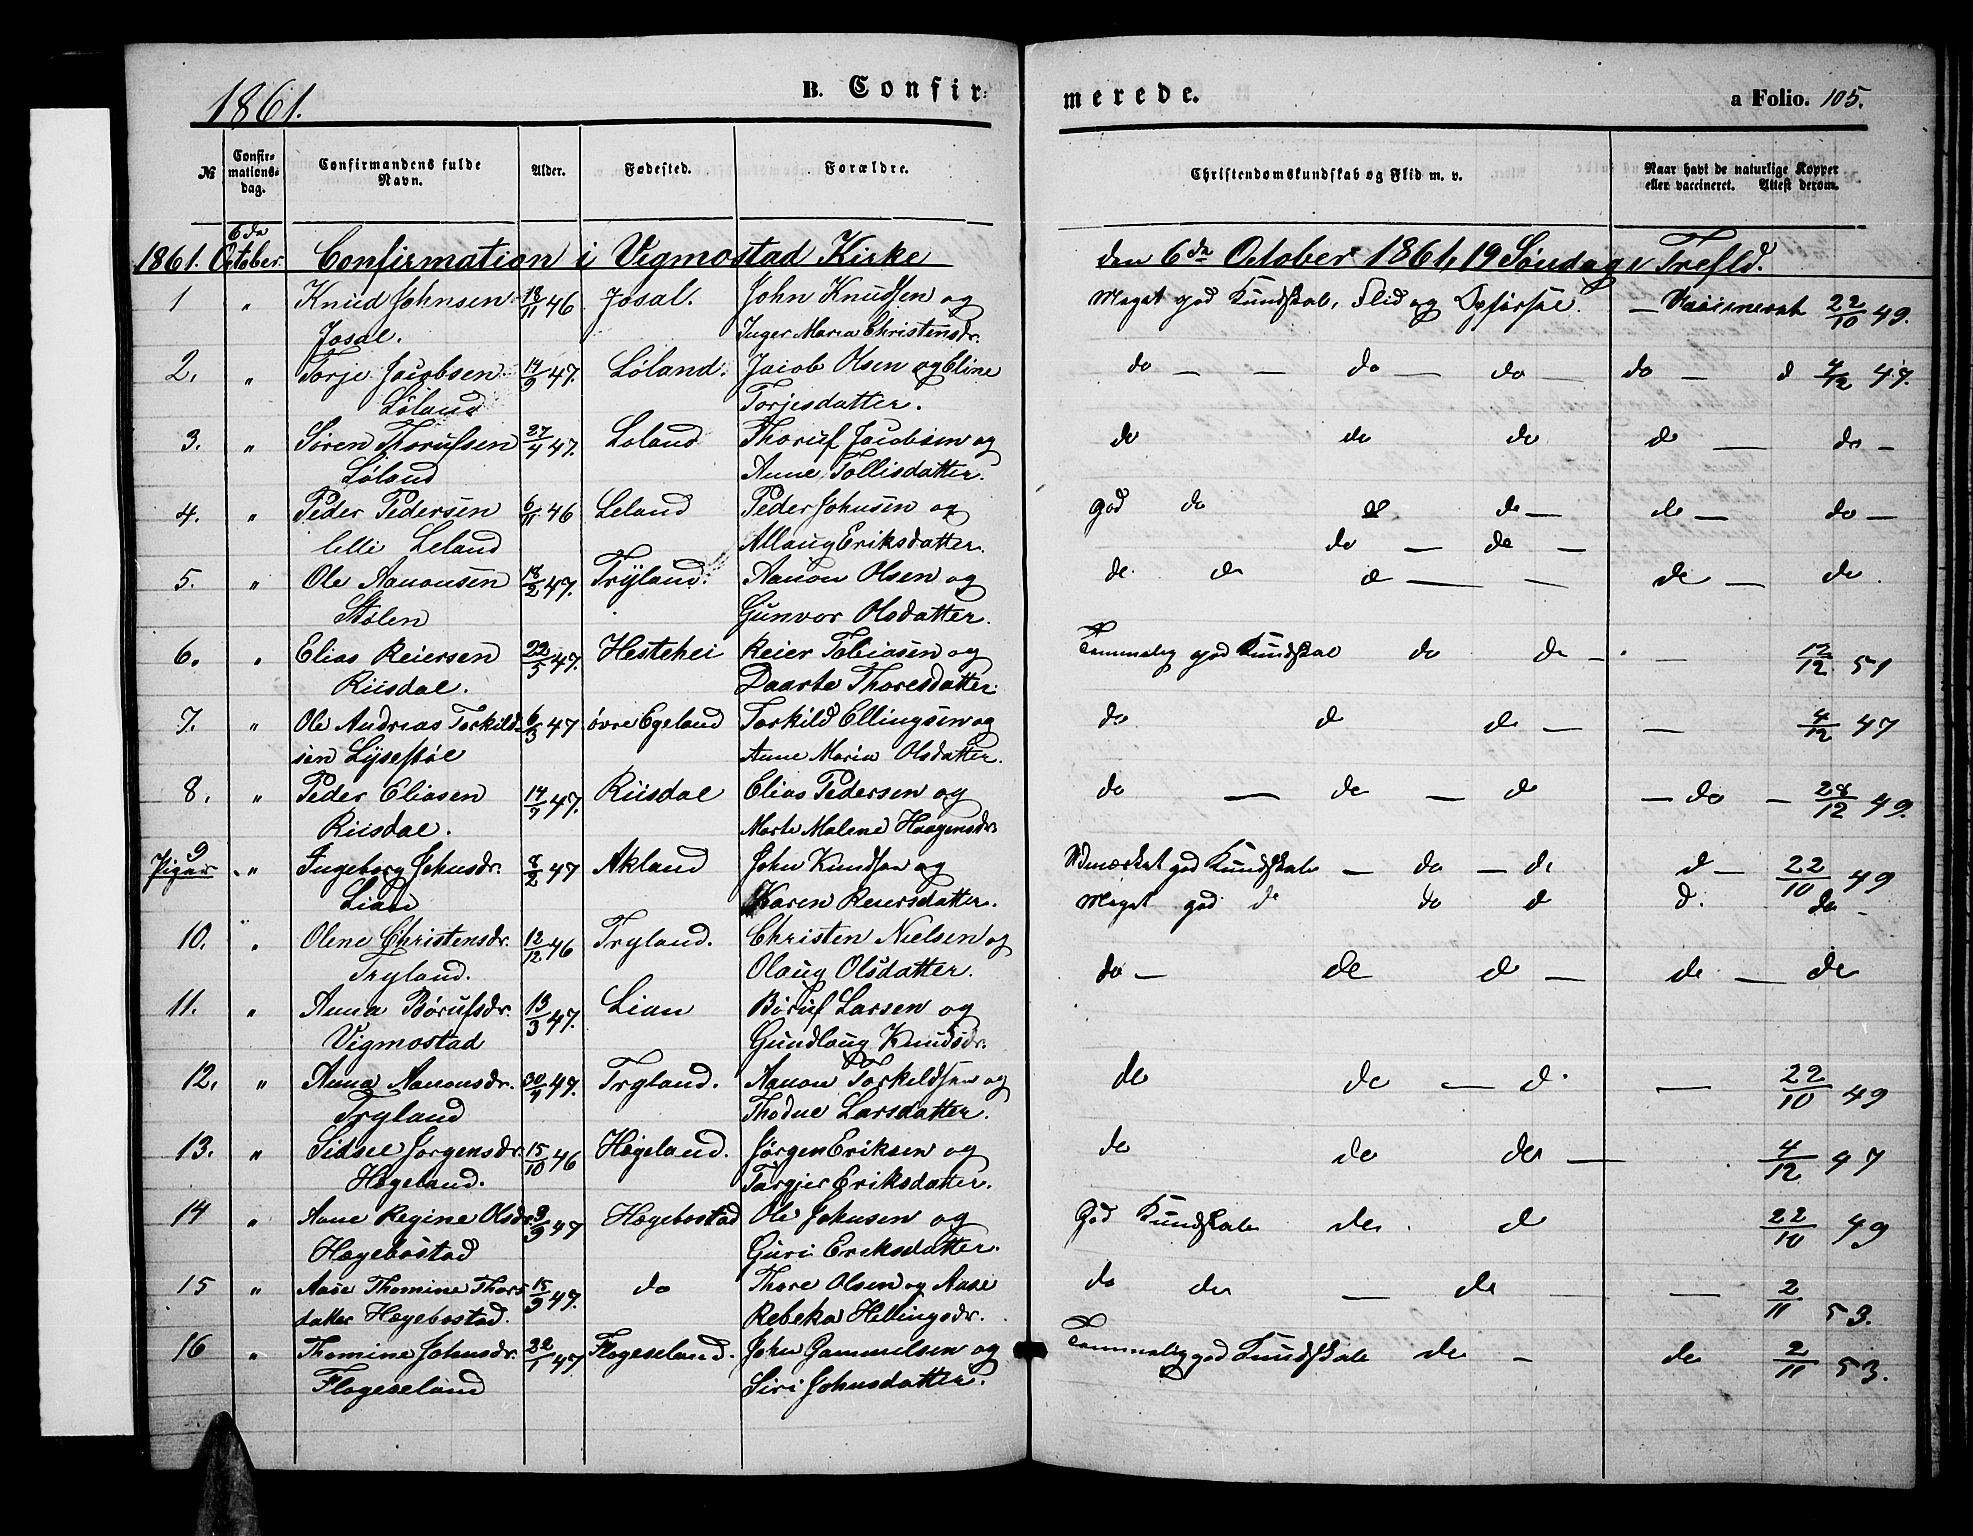 1861.
B. Confir-
merede.
a Folio. 105.
№
Confir-
mations-
dag.
Confirmandens fulde
Navn.
Alder.
Fødested.
Forældre.
Christendomskundskab og Flid m. v.
Naar havt de naturlige Kopper
eller vaccineret. Attest derom.
6de
1861. October. Confirmation i Vigmostad Kirke den 6de October 1861, 19 Søndag e Trefld.
1 " Knud Johnsen 18/11 46 Josal. John Knudsen og Meget god Kundskab, Flid og Opførsel. — Vaccineret 22/10 49.
Josal. Inger Maria Christensdr.
2. " Torje Jacobsen 14/9 47. Løland. Jacob Olsen og Eline do — — do — do — do — d 4/12 47.
Løland Torjesdatter.
3. " Søren Thorufsen 27/4 47. Loland Thoruf Jacobsen og do do do do — do —
Løland Anne Tollisdatter.
4. " Peder Pedersen 6/11 46 Leland Peder Johnsen og god do d do — do — do —
lille Leland Allaug Eriksdatter. do — do —
5. " Ole Aanonsen 18/2 47. Trÿland. Aanon Olsen og do do d — — do — do.
Stølen Gunvor Olsdatter.
6. " Elias Reiersen 22/5 47. Hestehei Reier Tobiasen og Temmelig god Kundskab do do — — 12/12 51
Riisdal. Daarte Thoresdatter.
7. " Ole Andreas Torkild- 6/5 47 øvre Egeland Torkild Ellingsen og do d do — — 4/12 47
sen Lÿsestøl Anne Maria Olsdatter.
8. " Peder Eliasen 14/7 47. Riisdal Elias Pedersen og do — do — do — do — 28/12 49.
Riisdal. Marte Malene Haagensdr.
9 Piger " Ingeborg Johnsdr. 8/2 47 Akland John Knudsen og Udmærket god Kundskab — do — do d — 22/10 49
Lian Karen Reiersdatter. Meget god do do d d. do —
10. " Olene Christensdr. 12/12 46 Tryland. Christen Nielsen og
Tryland. Olaug Olsdatter. do — do d — do — do
11. " Anna Børufsdr. 13/3 47. Lian Børuf Larsen og
Vigmostad Gundlaug Knudsdr.
12. " Anna Aanonsdr. 30/4 47. Tryland. Aanon Torkildsen og do do — d. — 22/10 49
Tryland Thodne Larsdatter.
13. " Sidsel Jørgensdr. 15/10 46 Hægeland. Jørgen Eriksen og do do do — 4/12 47
Hægeland. Targjer Eriksdatter.
14 " Aane Regine Olsdr. 9/9 47 Hægebostad Ole Johnsen og God Kundskab do. d 22/10 49
Hægebostad Guri Eriksdatter.
15 " Aase Thomine Thors 15/9 47. do Thore Olsen og Aase do do — do — — 2/11 53.
datter Hægebostad. Rebeka Hellingsdr.
16 " Thomine Johnsdr. 22/1 47. Flageseland. John Gammelsen og Temmelig god Kundskab do — do 2/11 53.
Flageseland Siri Johnsdatter.